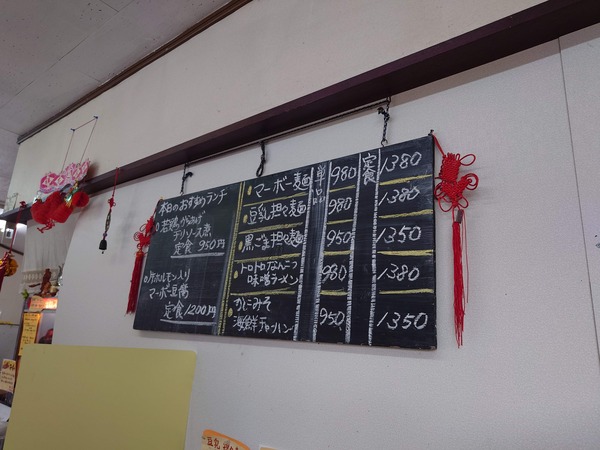 本日のおすすめランチ
若鶏からあげ
チリソース煮
定食 950円
ホルモン入り
マーボー豆腐
定食 1200円
単品
定食
マーボー麺 980 1380
豆乳担々麺 980 1380
黒ごま担々麺 950 1350
トロトロなんこつ
味噌ラーメン 980 1380
かにみそ
海鮮チャーハン 950 1350
豆乳